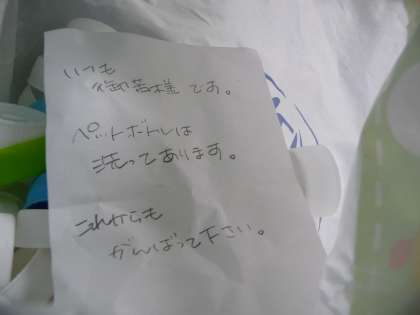 いつも
御苦労様です。
ペットボトルは
洗ってあります。
これからも
がんばって下さい。